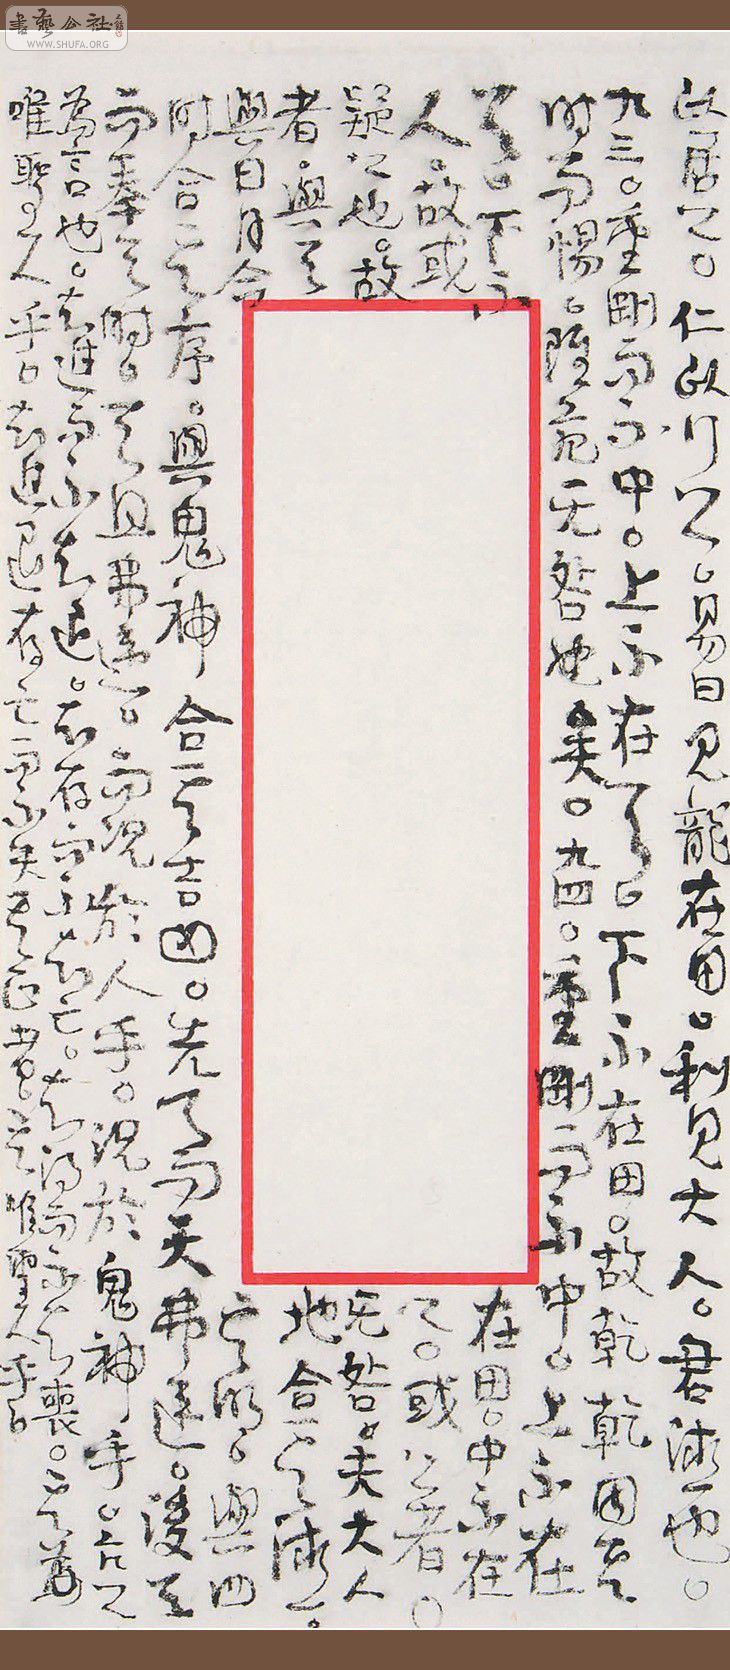 書藝公社
WWW.SHUFA.ORG
以居之。仁以行之。易曰見龍在田。利見大人。君德也。
九三。重剛而不中。上不在天。下不在田。故乾乾因其
時而惕。雖危无咎也矣。九四。重剛而不中。上不在
天。下不在田。中不在
人。故或之。或之者。
疑之也。故无咎。夫大人
者。與天地合其德。
與日月合其明。與四
時合其序。與鬼神合其吉凶。先天而天弗違。後天
而奉天時。天且弗違。而況於人乎。況於鬼神乎。亢之
為言也。知進而不知退。知存而不知亡。知得而不知喪。其
唯聖人乎。知進退存亡而不失其正者。其唯聖人乎。